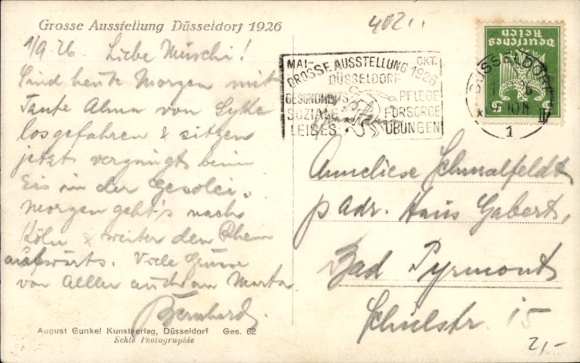 Grosse Ausstellung Düsseldorf 1926
1/9.26. Liebe Murschi!
Sind heute Morgen mit
Tante Alma von Syke
losgefahren & sitzen
jetzt vergnügt beim
Eis in der Gesolei.
Morgen geht's nach
Köln & weiter den Rhein
aufwärts. Viele Grüsse
von Allen auch an Marta
Bernhard
August Gunkel Kunstverlag, Düsseldorf Ges. 62
Echte Photographie
MAI- OKT.
GROSSE AUSSTELLUNG 1926
DÜSSELDORF
GESUNDHEITS PFLEGE
SOZIALE FÜRSORGE
LEIBES ÜBUNGEN
DÜSSELDORF
1
Deutsches Reich
5 5
Anneliese Schmalfeldt
p Adr. Haus Gabert,
Bad Pyrmont
Schulstr. 15
2,-